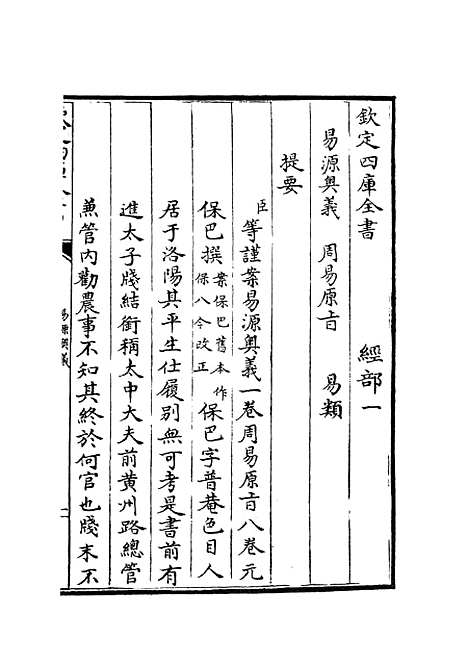 欽定四庫全書　　　經部一
易源奥義　周易原㫖　易類
提要
臣等謹案易源奥義一卷周易原㫖八卷元
保巴撰案保巴舊本作保八今改正保巴字普菴色目人
居于洛陽其平生仕履別無可考是書前有
進太子牋結銜稱太中大夫前黄州路總管
兼管内勸農事不知其終於何官也牋末不
易源奥義